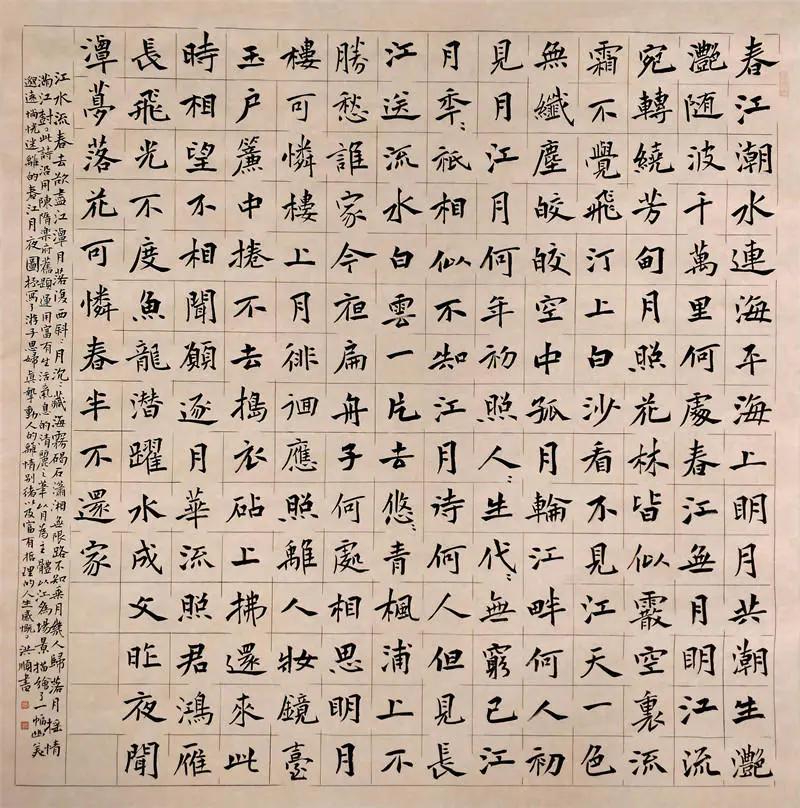 春江潮水連海平海上明月共潮生灩
灩随波千萬里何處春江無月明江流
宛轉繞芳甸月照花林皆似霰空裏流
霜不覺飛汀上白沙看不見江天一色
無纖塵皎皎空中孤月輪江畔何人初
見月江月何年初照人〻生代〻無窮已江
月年〻衹相似不知江月待何人但見長
江送流水白雲一片去悠〻青楓浦上不
勝愁誰家今夜扁舟子何處相思明月
樓可憐樓上月徘徊應照離人妝鏡臺
玉户簾中捲不去搗衣砧上拂還來此
時相望不相聞願逐月華流照君鴻雁
長飛光不度魚龍潜躍水成文昨夜聞
潭夢落花可憐春半不還家
江水流春去欲盡江潭月落復西斜〻月沉〻藏海霧碣石瀟湘無限路不知乘月幾人歸落月摇情
滿江樹。此詩沿用陳隋樂府舊題運用富有生活氣息的清麗之筆以月為主體以江為場景描繪了一幅幽美
邈遠惝恍迷離的春江月夜圖抒寫了游子思婦真摯動人的離情别緒以及富有哲理的人生感慨。洪順書